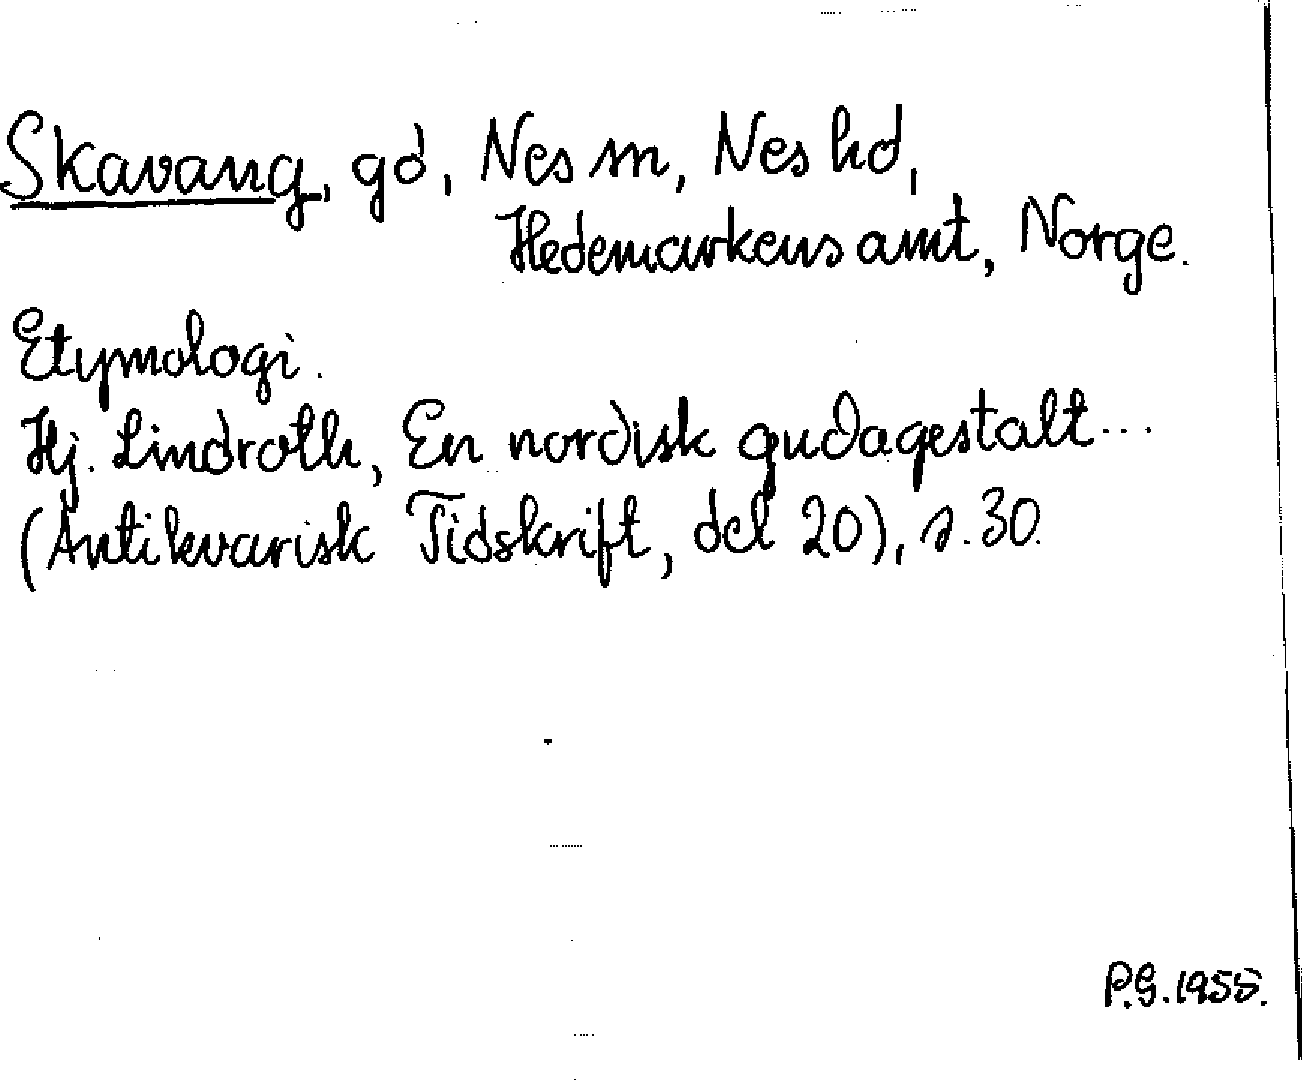 Skavang, gd, Nes sn, Nes hd,
Hedemarkens amt, Norge.
Etymologi.
Hj. Lindroth, En nordisk gudagestalt...
(Antikvarisk Tidskrift, del 20), s. 30.
P.G. 1958.